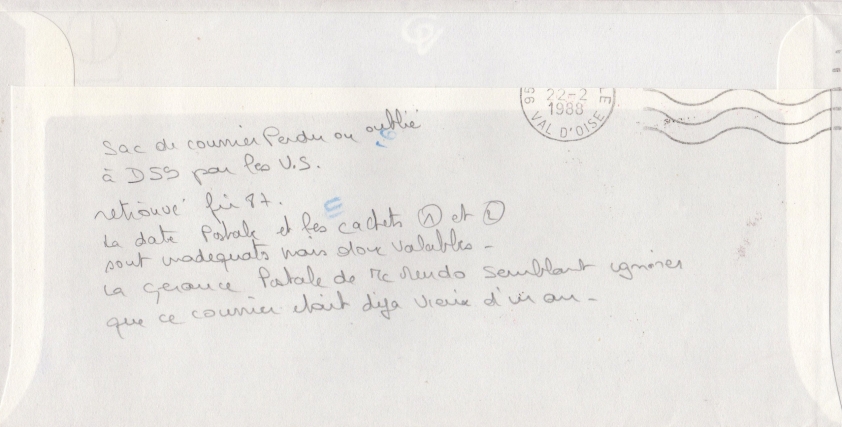 95 22-2 LE
1988
VAL D'OISE
Sac de courrier Perdu ou oublié
à DSS par les U.S.
retrouvé fin 87.
La date Postale et les cachets ① et ②
sont inadequats mais donc valables -
La Gerance Postale de Mc Murdo Semblant ignorer
que ce courrier etait deja vieux d'un an -